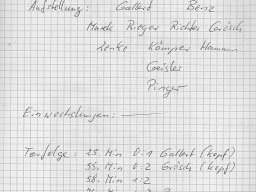 Aufstellung: Gallert Benz
Marek Rieger Richter Grösch
Lenke Kämper Hamann
Geisler
Pinger
Einwechslungen: ———
Torfolge: 25. Min 0:1 Gallert (Kopf)
55. Min 0:2 Grösch (Kopf)
58. Min 1:2